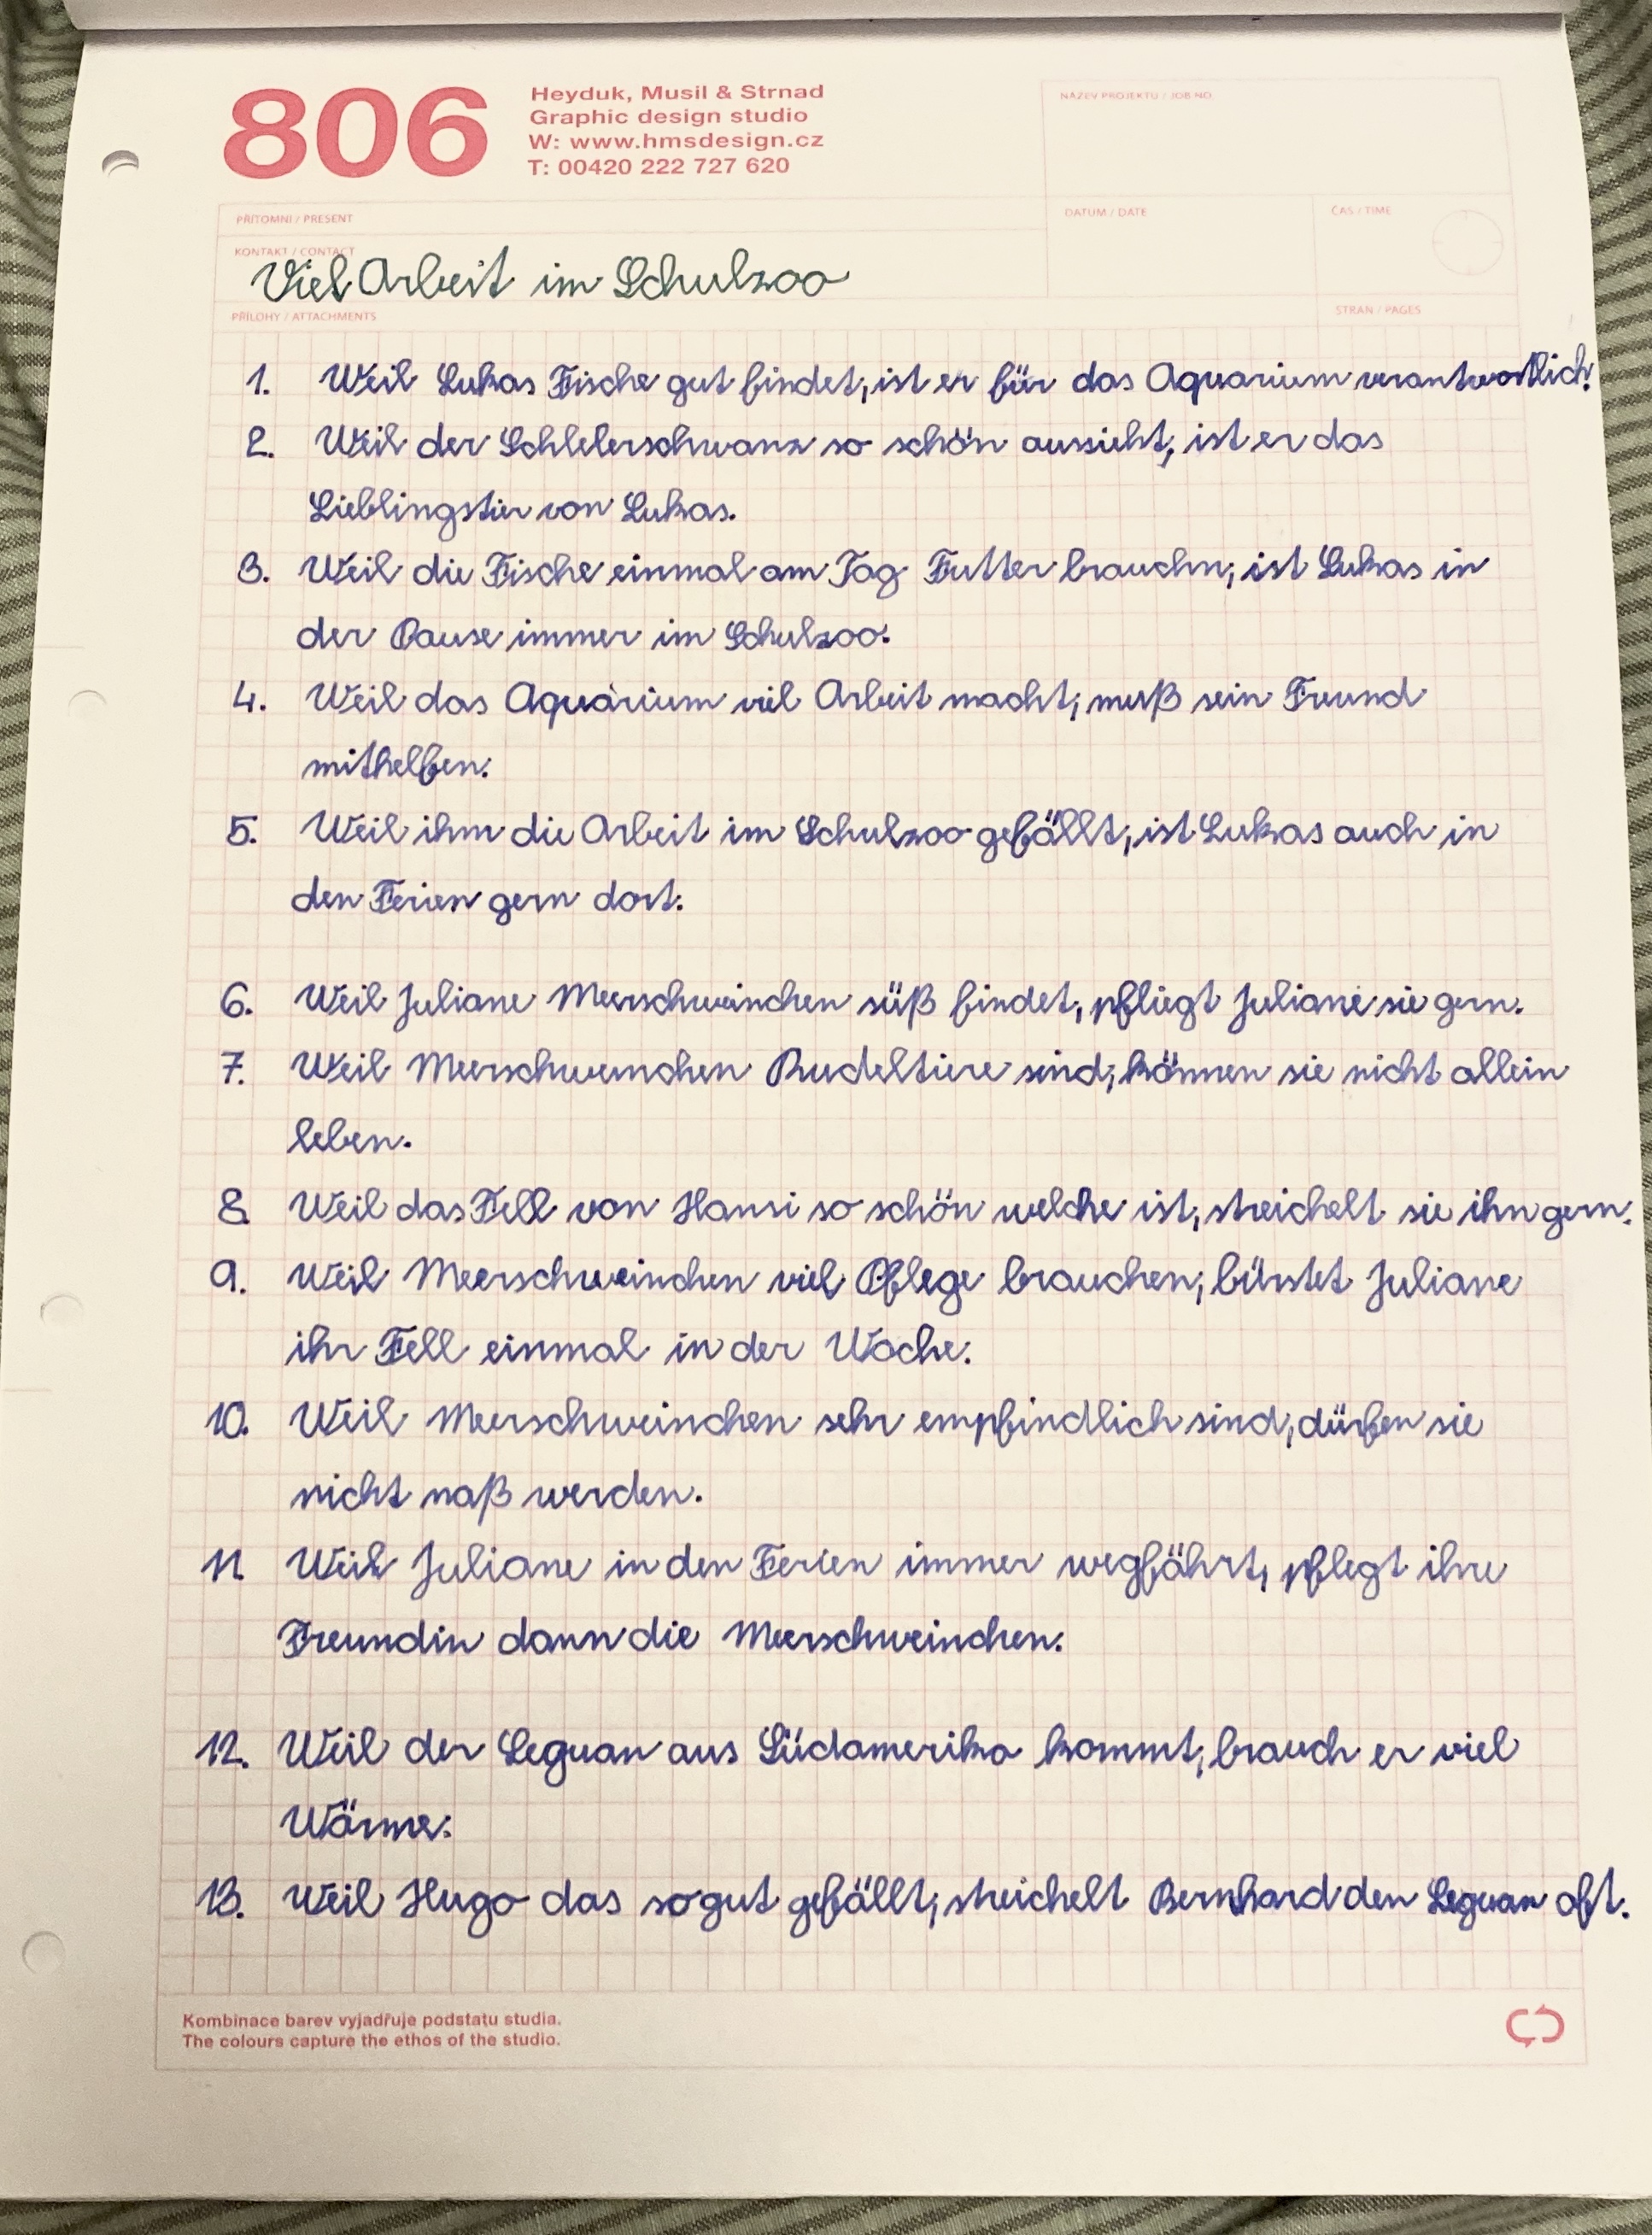 806
Heyduk, Musil & Strnad
Graphic design studio
W: www.hmsdesign.cz
T: 00420 222 727 620
NÁZEV PROJEKTU / JOB NO.
PŘÍTOMNI / PRESENT
DATUM / DATE
ČAS / TIME
KONTAKT / CONTACT
Viel Arbeit im Schulzoo
PŘÍLOHY / ATTACHMENTS
STRAN / PAGES
1. Weil Lukas Fische gut findet, ist er für das Aquarium verantwortlich.
2. Weil der Schlelerschwanz so schön aussieht, ist er das
Lieblingstier von Lukas.
3. Weil die Fische einmal am Tag Futter brauchn, ist Lukas in
der Pause immer im Schulzoo.
4. Weil das Aquarium viel Arbeit macht, muß sein Freund
mithelfen.
5. Weil ihm die Arbeit im Schulzoo gefällt, ist Lukas auch in
den Ferien gern dort.
6. Weil Juliane Meerschweinchen süß findet, pfliegt Juliane sie gern.
7. Weil Meerschweinchen Rudeltiere sind, können sie nicht allein
leben.
8. Weil das Fell von Hansi so schön welche ist, streichelt sie ihn gern.
9. Weil Meerschweinchen viel Pflege brauchen, bürstet Juliane
ihr Fell einmal in der Woche.
10. Weil Meerschweinchen sehr empfindlich sind, dürfen sie
nicht naß werden.
11 Weil Juliane in den Ferien immer wegfährt, pflegt ihre
Freundin dann die Meerschweinchen.
12. Weil der Leguan aus Südamerika kommt, brauch er viel
Wärme.
13. Weil Hugo das so gut gefällt, streichelt Bernhard den Leguan oft.
Kombinace barev vyjadřuje podstatu studia.
The colours capture the ethos of the studio.